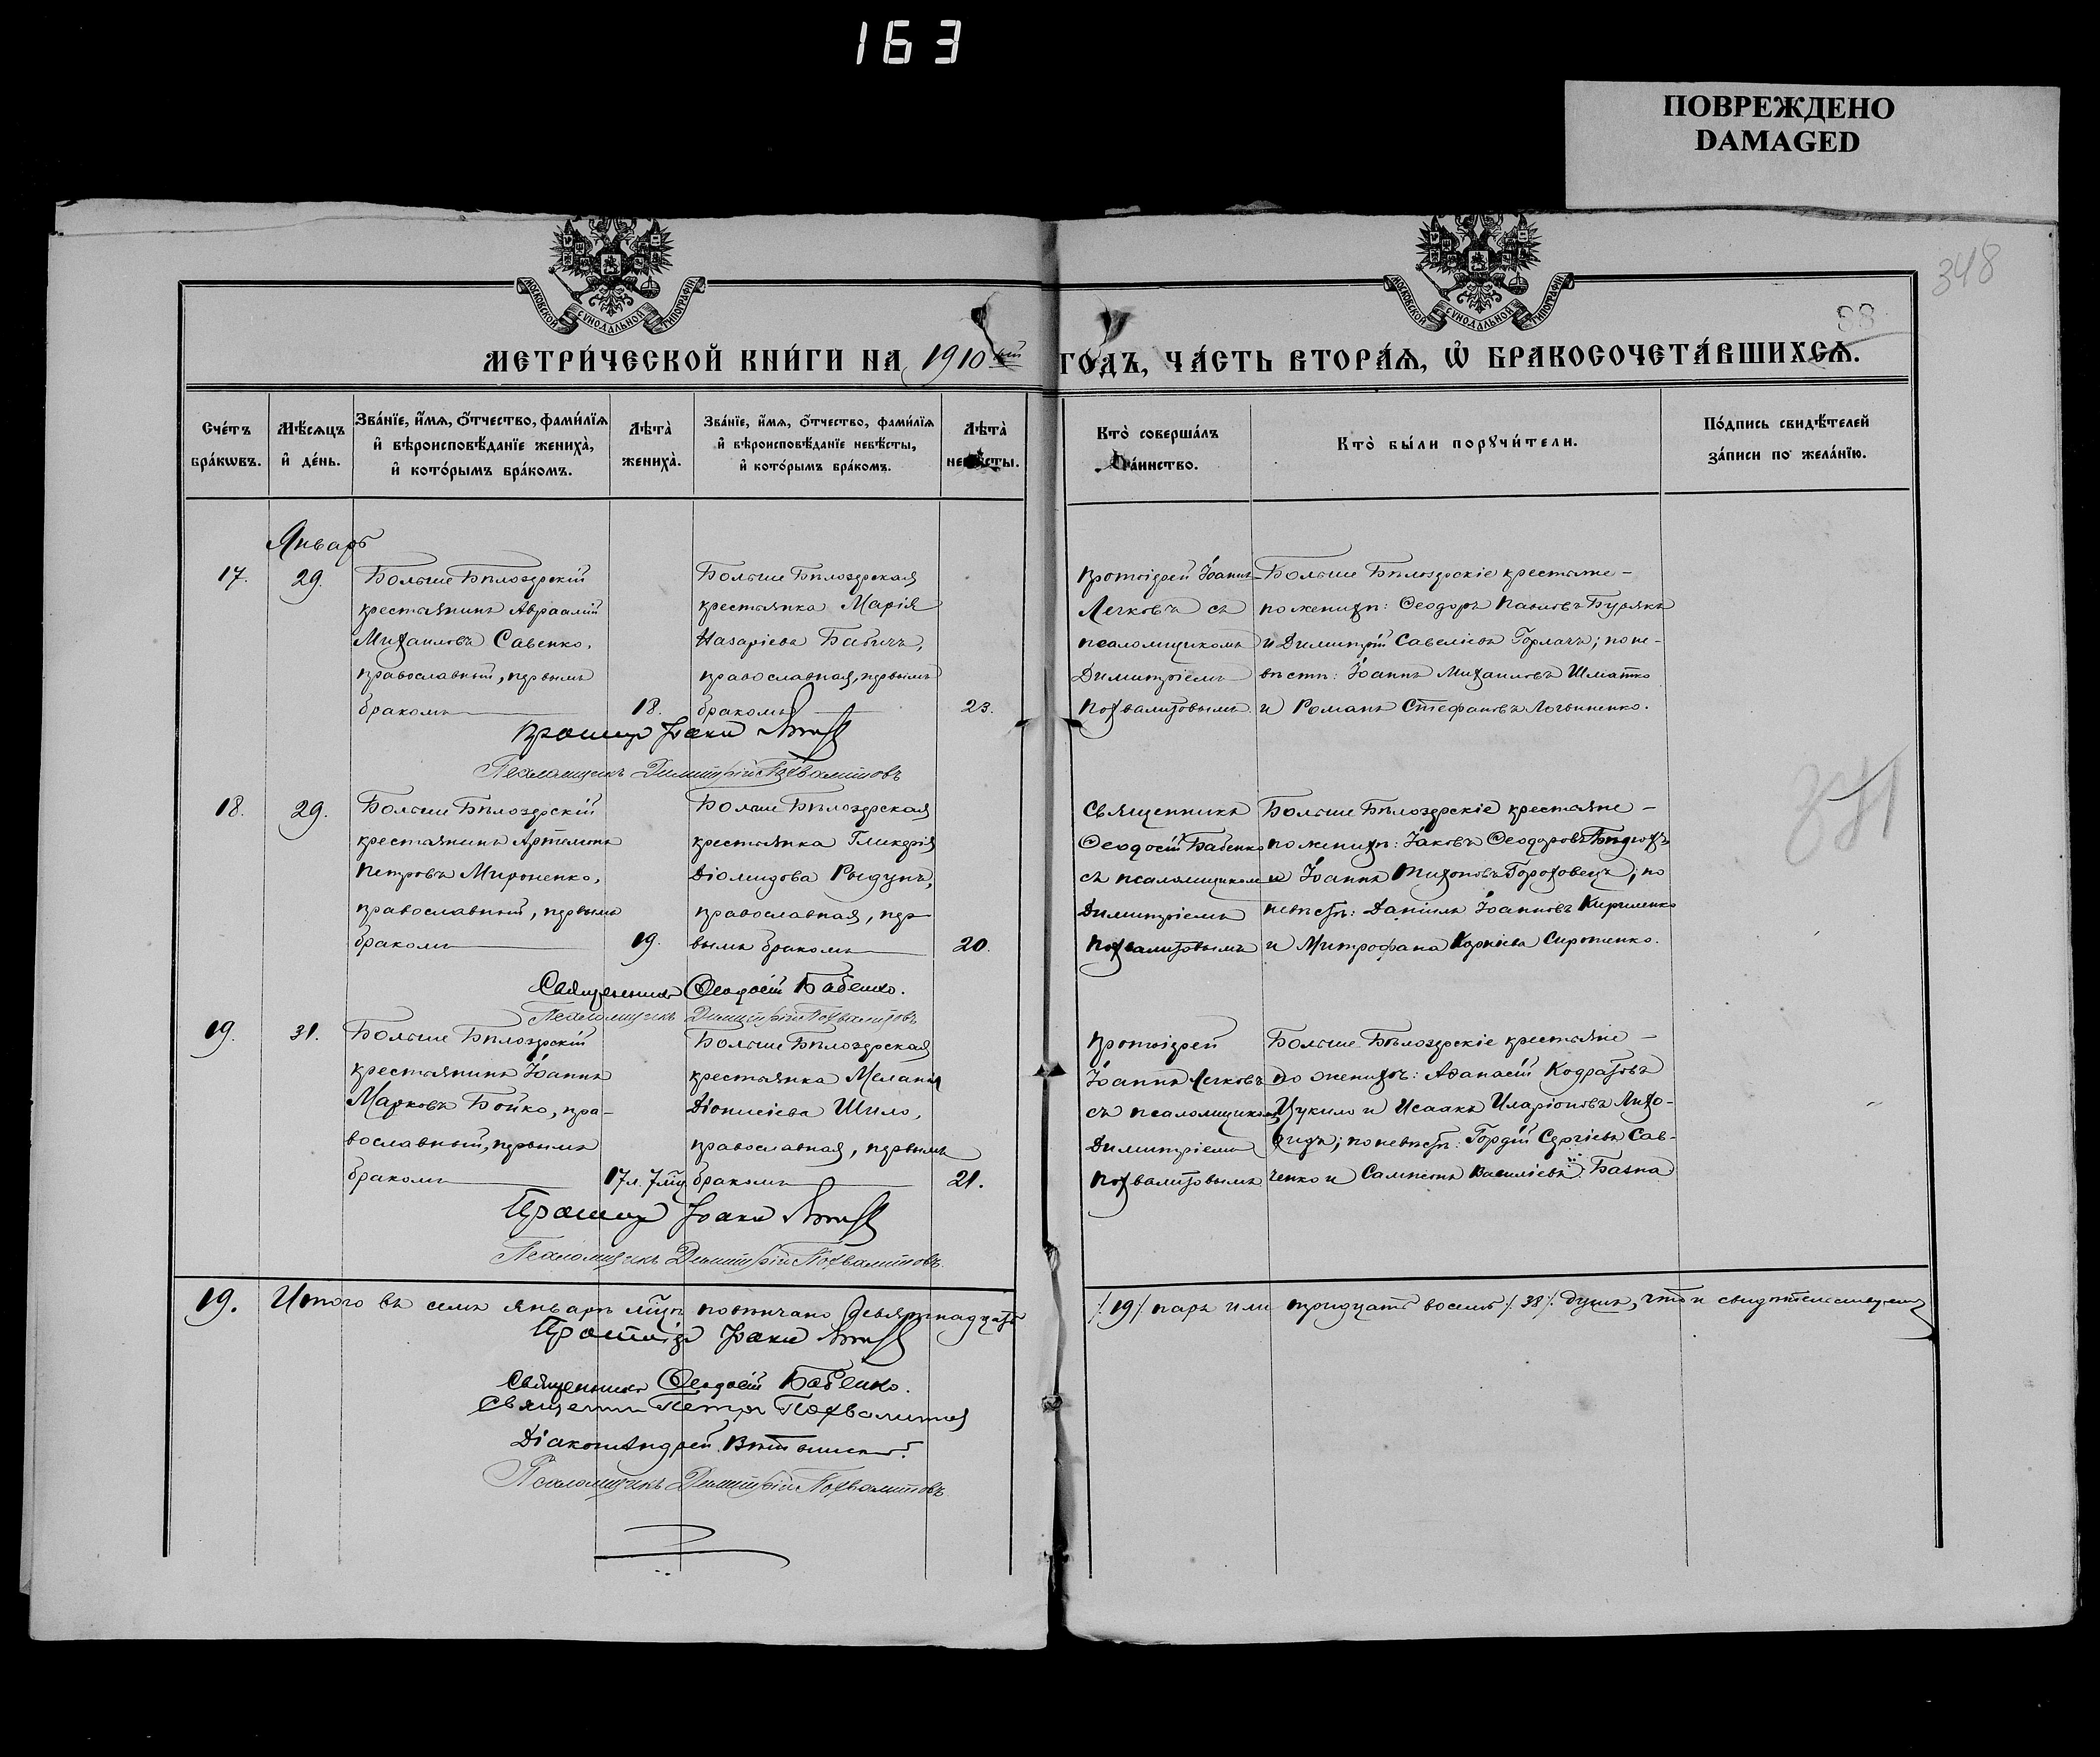 163
ПОВРЕЖДЕНО
DAMAGED
348
88
МОСКОВСКОЙ СУНОДАЛЬНОЙ ТИПОГРАФІИ
МОСКОВСКОЙ СУНОДАЛЬНОЙ ТИПОГРАФІИ
МЕТРИ́ЧЕСКОЙ КНИ́ГИ НА 1910ый ГОДЪ, ЧА́СТЬ ВТОРА́Я, Ѡ БРАКОСОЧЕТА́ВШИХСЯ.
Сче́тъ бра́кѡвъ.
Мѣ́сяцъ и҆ де́нь.
Зва́нїе, и҆́мя, о҆́тчество, фами́лїя
и҆ вѣроисповѣ́данїе жениха̀,
и҆ кото́рымъ бра́комъ.
Лѣта̀ жениха̀.
Зва́нїе, и҆́мя, о҆́тчество, фами́лїя
и҆ вѣроисповѣ́данїе невѣ́сты,
и҆ кото́рымъ бра́комъ.
Лѣта̀ невѣ́сты.
Кто̀ соверша́лъ
та́инство.
Кто̀ бы́ли порꙋчи́тели.
По́дпись свидѣ́телей
за́писи по жела́нїю.
Январь
17. 29.
Больше Бѣлозерскій
крестьянинъ Авраамій
Михаиловъ Савенко,
православный, первымъ
бракомъ
18.
Больше Бѣлозерская
крестьянка Марія
Назаріева Бабичъ,
православная, первымъ
бракомъ
23.
Протоіерей Іоаннъ
Легковъ съ
псаломщикомъ
Димитріемъ
Похвалитовымъ
Больше Бѣлозерскіе крестьяне –
по женихѣ: Ѳеодоръ Павловъ Бурякъ
и Димитрій Савеліевъ Горлачъ; по не-
вѣстѣ: Іоаннъ Михаиловъ Шматко
и Романъ Стефановъ Логвиненко.
Протоіер Іоаннъ
Псаломщикъ Димитрій Похвалитовъ
18. 29.
Больше Бѣлозерскій
крестьянинъ Артемонъ
Петровъ Мироненко,
православный, первымъ
бракомъ
19.
Больше Бѣлозерская
крестьянка Гликерія
Діомидова
православная, пер-
вымъ бракомъ
20.
Священникъ
Ѳеодосій Бабенко
съ псаломщикомъ
Димитріемъ
Похвалитовымъ
Больше Бѣлозерскіе крестьяне –
по женихѣ: Іаковъ Ѳеодоровъ
и Іоаннъ Тихоновъ Гороховецъ; по
невѣстѣ: Даніилъ Іоанновъ Кириленко
и Митрофанъ Корніевъ Сиротенко.
Священникъ Ѳеодосій Бабенко.
Псаломщикъ Димитрій Похвалитовъ
19. 31.
Больше Бѣлозерскій
крестьянинъ Іоаннъ
Марковъ Бойко, пра-
вославный, первымъ
бракомъ
17 л. 7 мц
Больше Бѣлозерская
крестьянка Меланія
Діонисіева Шило,
православная, первымъ
бракомъ
21.
Протоіерей
Іоаннъ Легковъ
съ псаломщикомъ
Димитріемъ
Похвалитовымъ
Больше Бѣлозерскіе крестьяне –
по женихѣ: Аѳанасій Кодратовъ
Цукило и Исаакъ Иларіоновъ Лихо-
видъ; по невѣстѣ: Гордій Сергіевъ Сав-
ченко и Сампсонъ Василіевъ Базна
Протоіер Іоаннъ
Псаломщикъ Димитрій Похвалитовъ.
19. Итого въ семъ январѣ мцѣ повѣнчано девятнадцать /19/ паръ или тридцать восемь /38/ душъ, что и свидѣтельствуемъ
Протоіер Іоаннъ
Священникъ Ѳеодосій Бабенко.
Священникъ Петръ Похвалитовъ
Діаконъ Андрей
Псаломщикъ Димитрій Похвалитовъ